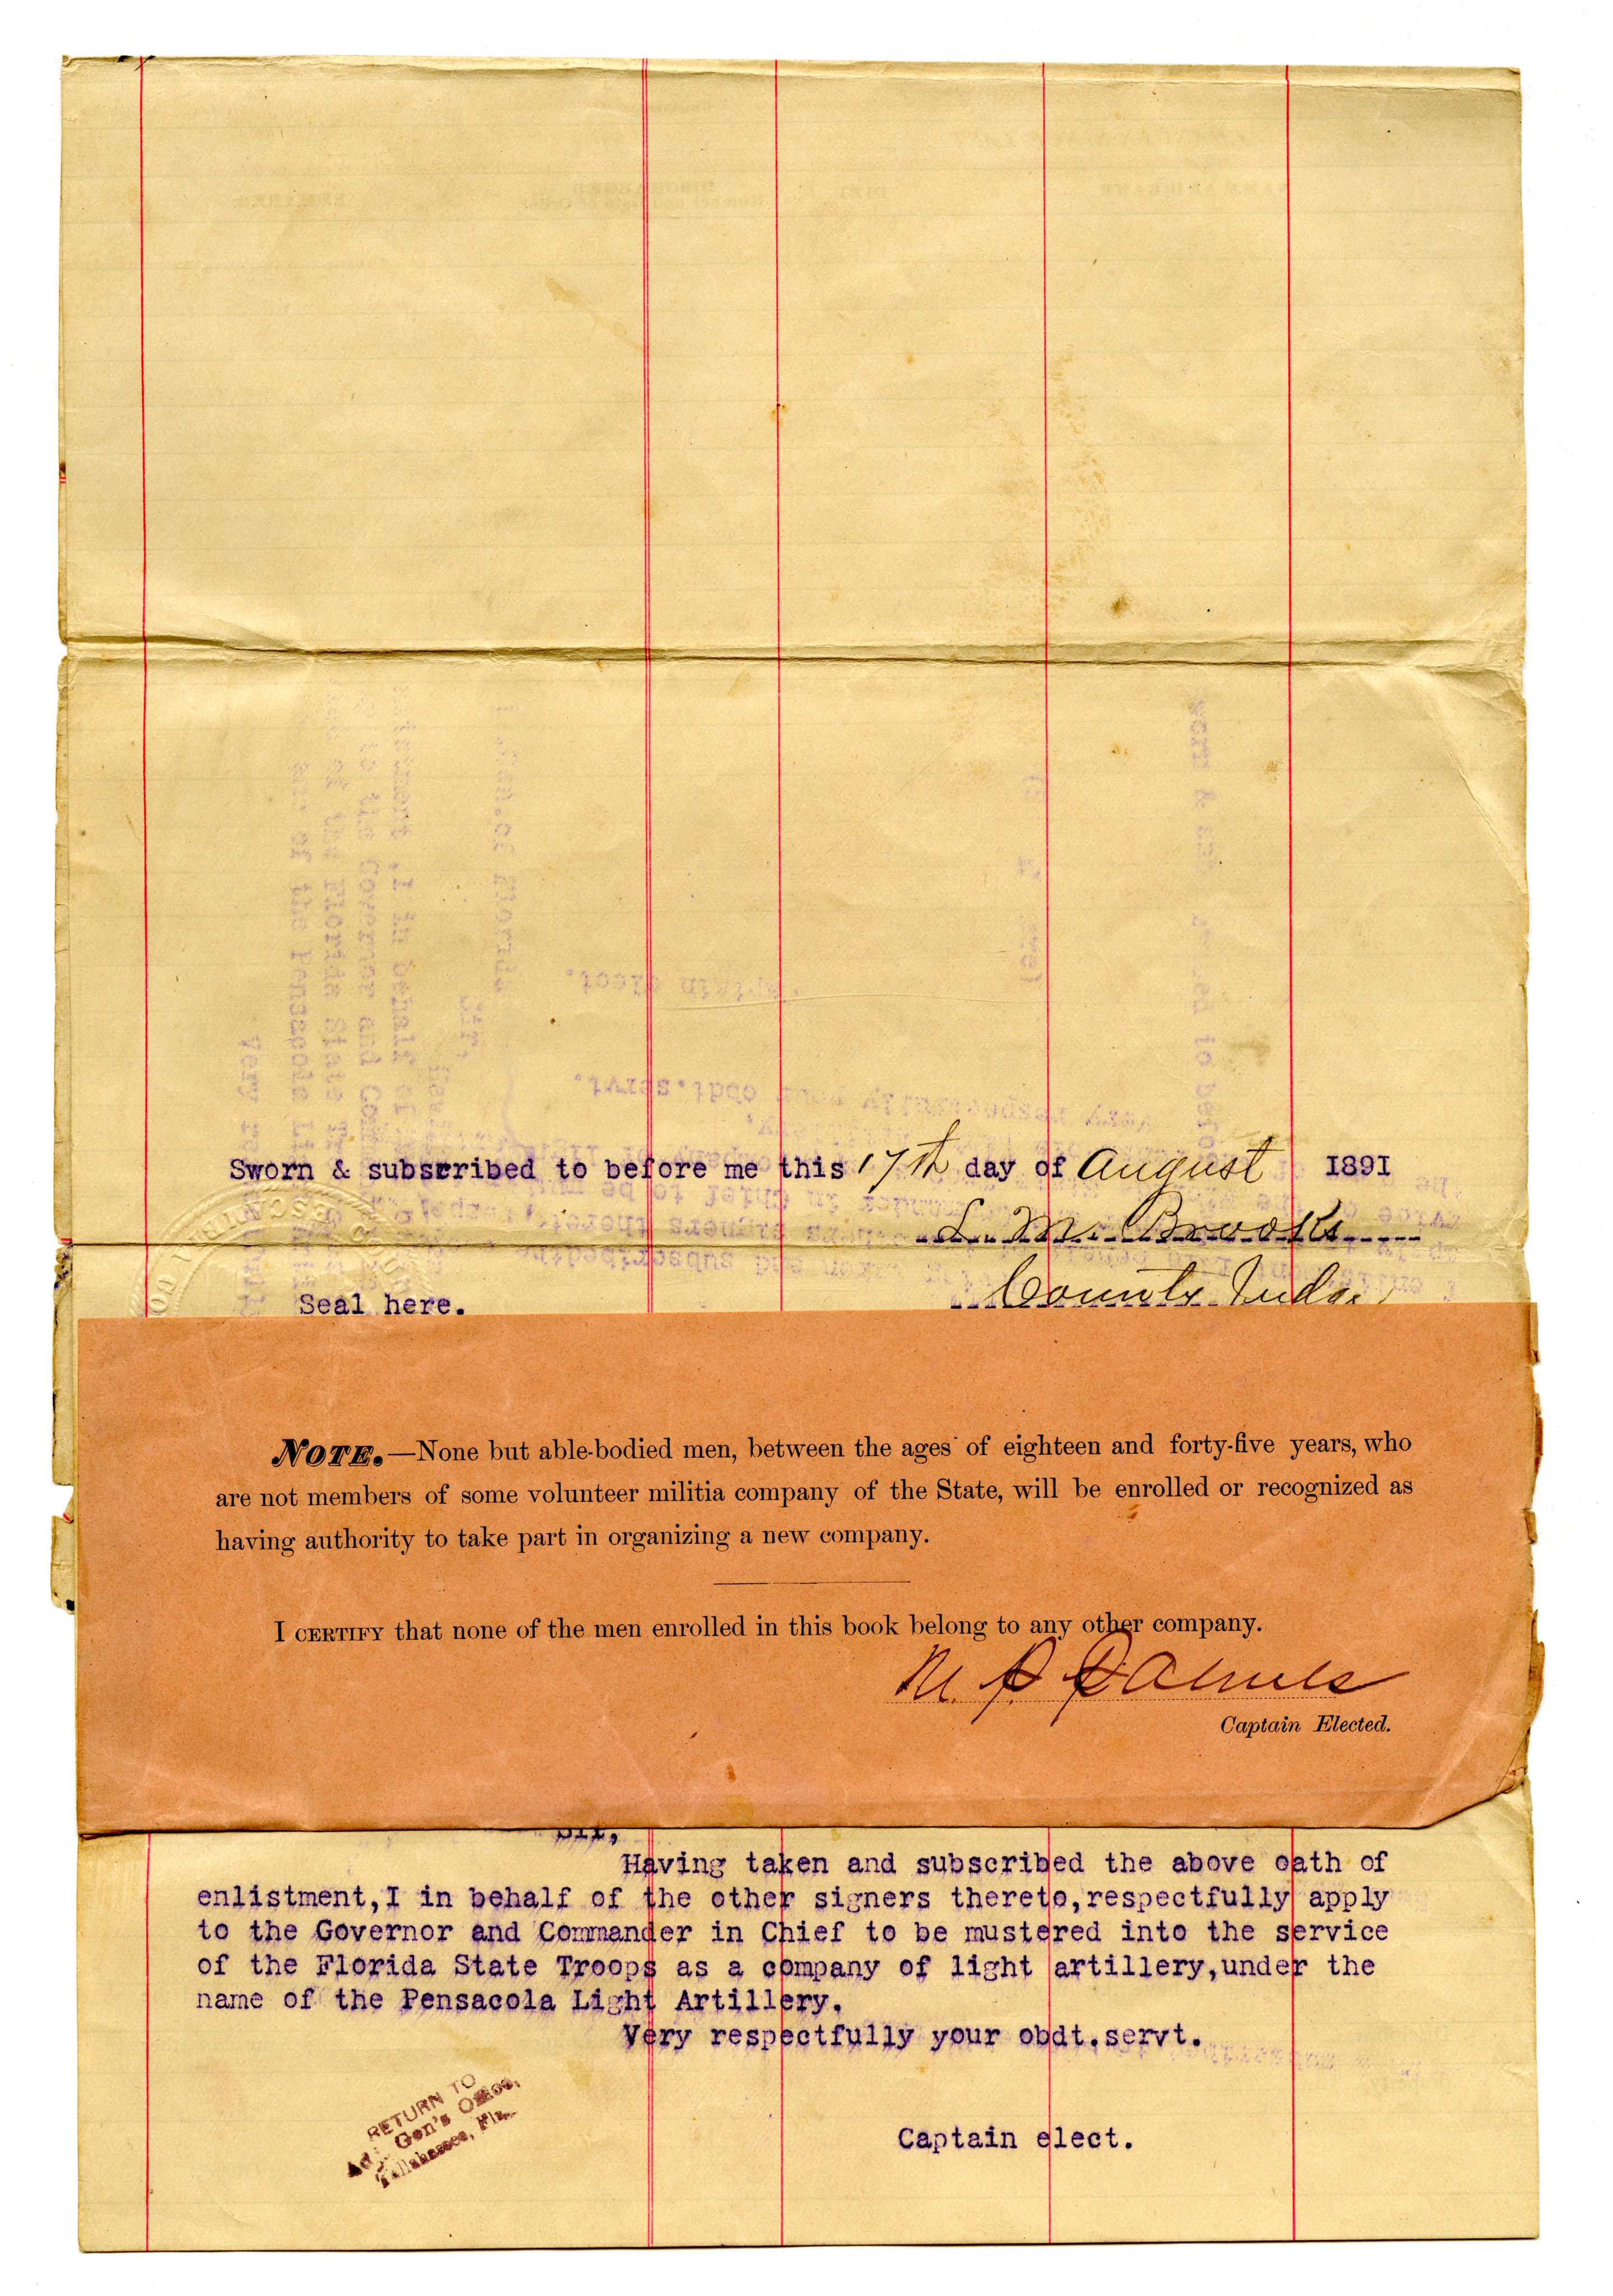 Sworn & subscribed to before me this 17th day of August 1891
L. M. Brooks
County Judge
Seal here.
NOTE.—None but able-bodied men, between the ages of eighteen and forty-five years, who
are not members of some volunteer militia company of the State, will be enrolled or recognized as
having authority to take part in organizing a new company.
I CERTIFY that none of the men enrolled in this book belong to any other company.
Captain Elected.
Sir,
Having taken and subscribed the above oath of
enlistment,I in behalf of the other signers thereto,respectfully apply
to the Governor and Commander in Chief to be mustered into the service
of the Florida State Troops as a company of light artillery,under the
name of the Pensacola Light Artillery.
Very respectfully your obdt.servt.
RETURN TO
Adj. Gen's Office,
Tallahassee, Fla.
Captain elect.